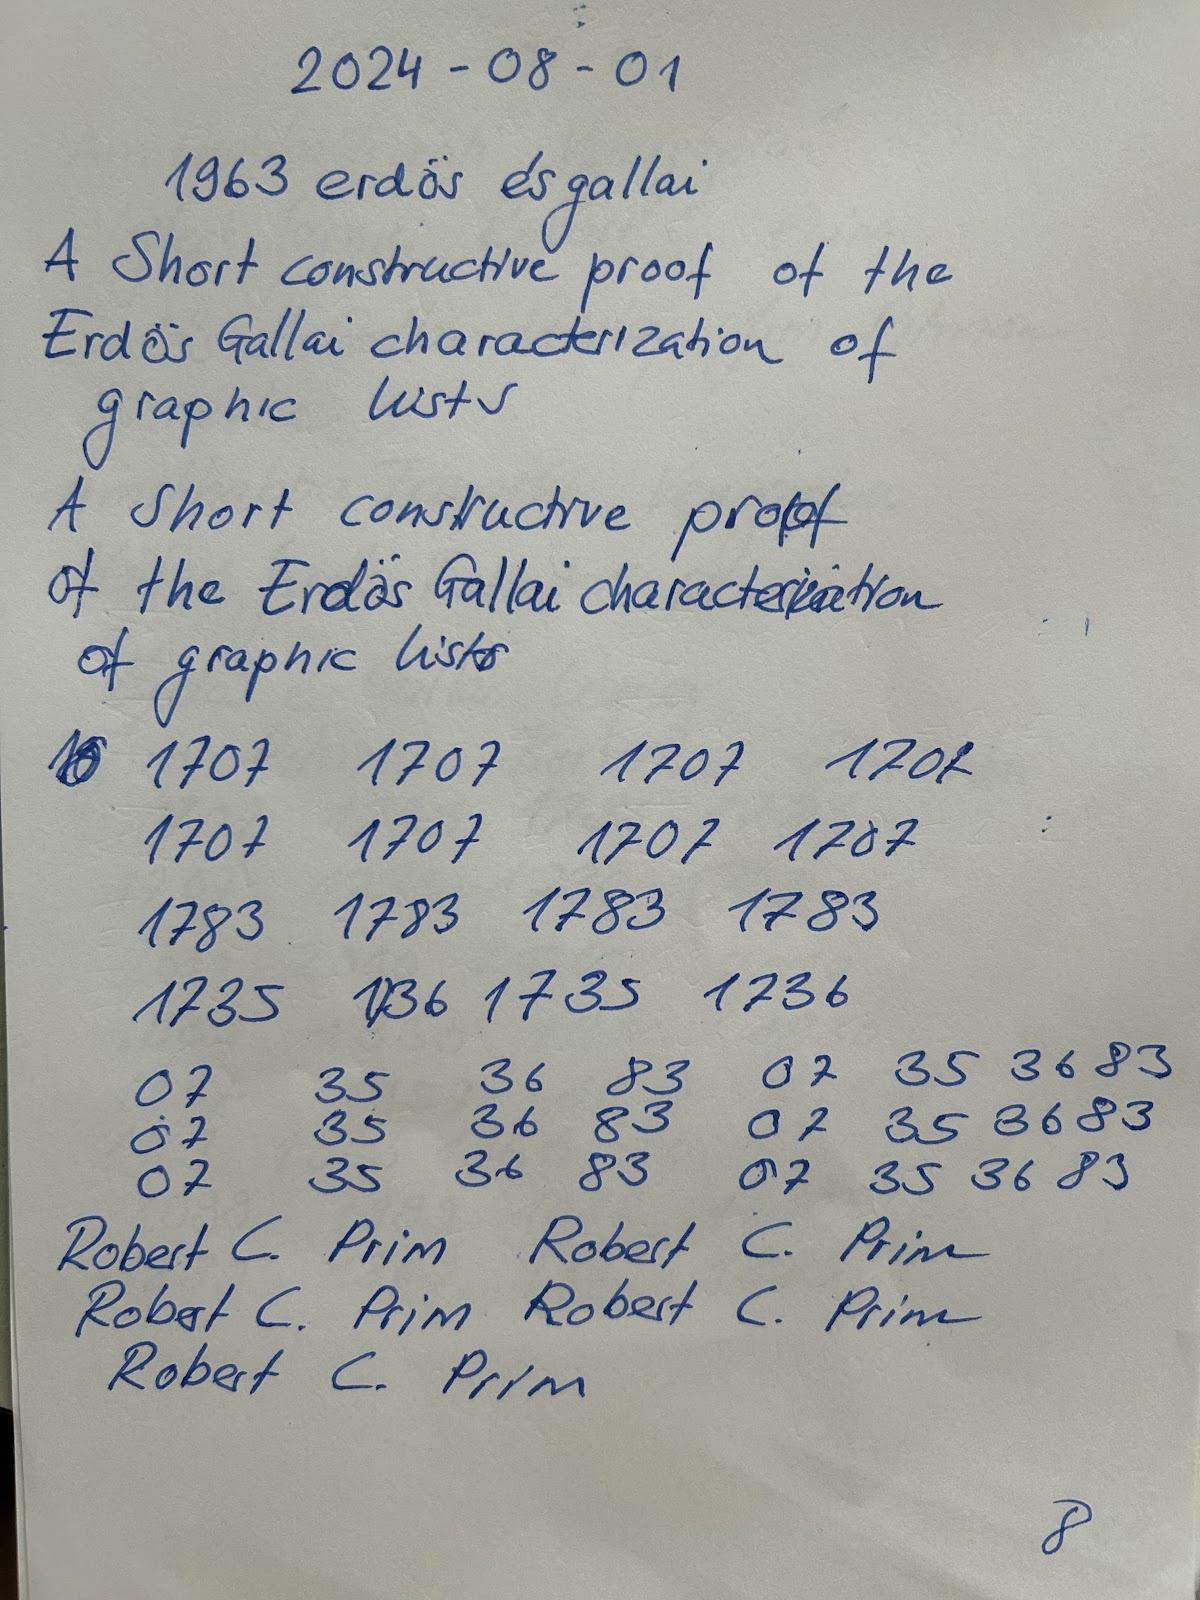 2024-08-01
1963 erdös és gallai
A Short constructive proof of the
Erdös Gallai characterization of
graphic lists
A Short constructive proof
of the Erdös Gallai characterization
of graphic lists
1707 1707 1707 1707
1707 1707 1707 1707
1783 1783 1783 1783
1735 1736 1735 1736
07 35 36 83 07 35 36 83
07 35 36 83 07 35 36 83
07 35 36 83 07 35 36 83
Robert C. Prim Robert C. Prim
Robert C. Prim Robert C. Prim
Robert C. Prim
8